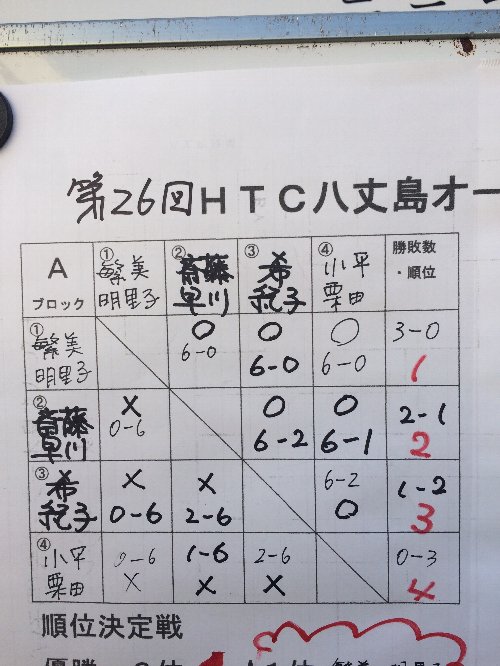 第26回HTC八丈島オー
A ① ② ③ ④ 勝敗数
ブロック 繁美 斎藤 希 小平 ・順位
明里子 早川 紀子 栗田
① ○ ○ ○ 3-0
繁美 6-0 6-0 6-0 1
明里子
② × ○ ○ 2-1
斎藤 0-6 6-2 6-1 2
早川
③ × × 6-2 1-2
希 0-6 2-6 ○ 3
紀子
④ 0-6 1-6 2-6 0-3
小平 × × × 4
栗田
順位決定戦